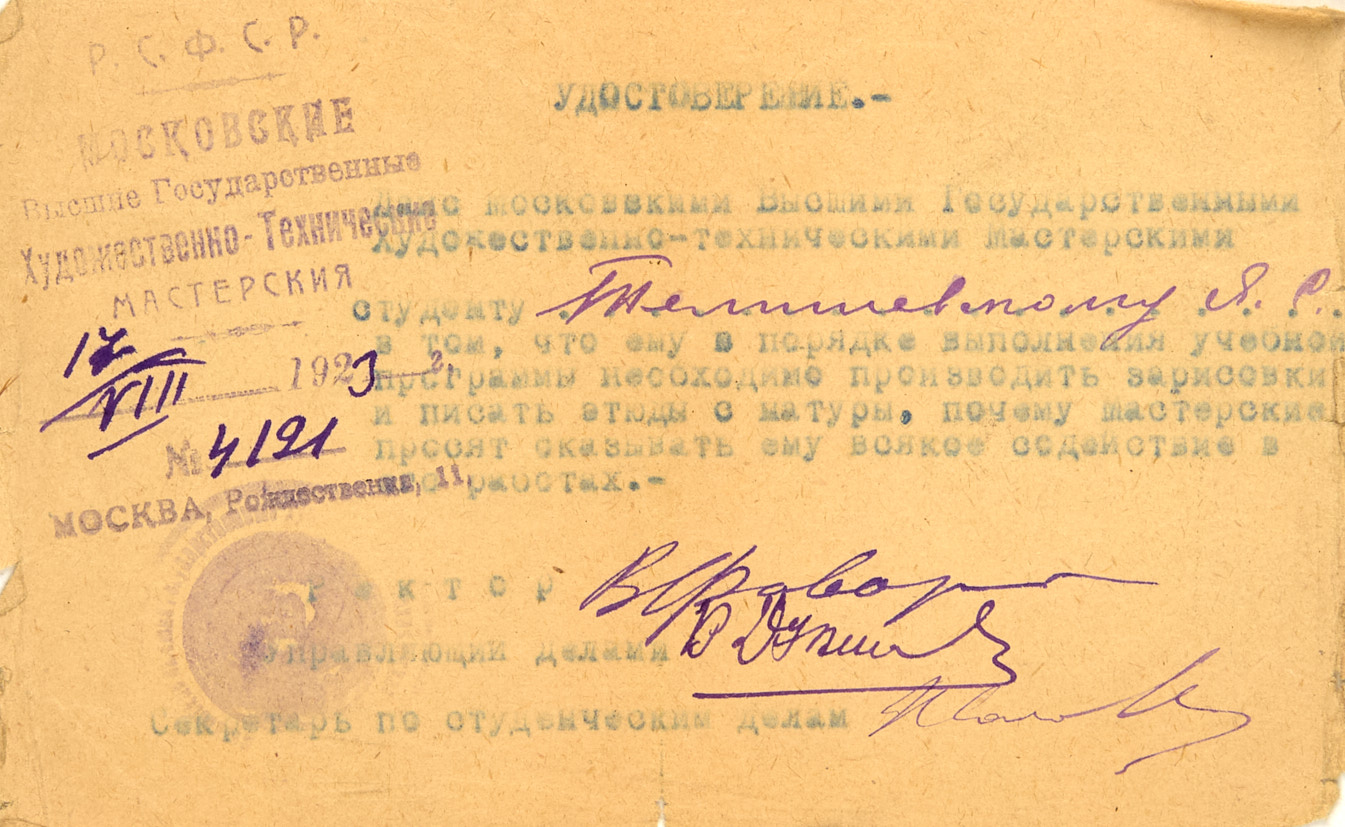 Р. С. Ф. С. Р.
МОСКОВСКИЕ
Высшие Государственные
Художественно-Технические
МАСТЕРСКИЯ
17/VIII 1923 г.
№ 4191
МОСКВА, Рождественка, 11.
УДОСТОВЕРЕНИЕ.-
Дано Московскими Высшими Государственными
Художественно-техническими Мастерскими
студенту Телишевскому Я. С.
в том, что ему в порядке выполнения учебной
программы необходимо производить зарисовки
и писать этюды с натуры, почему Мастерские
просят оказывать ему всякое содействие в
работах.-
Ректор В Фавор
Управляющий делами
Секретарь по студенческим делам